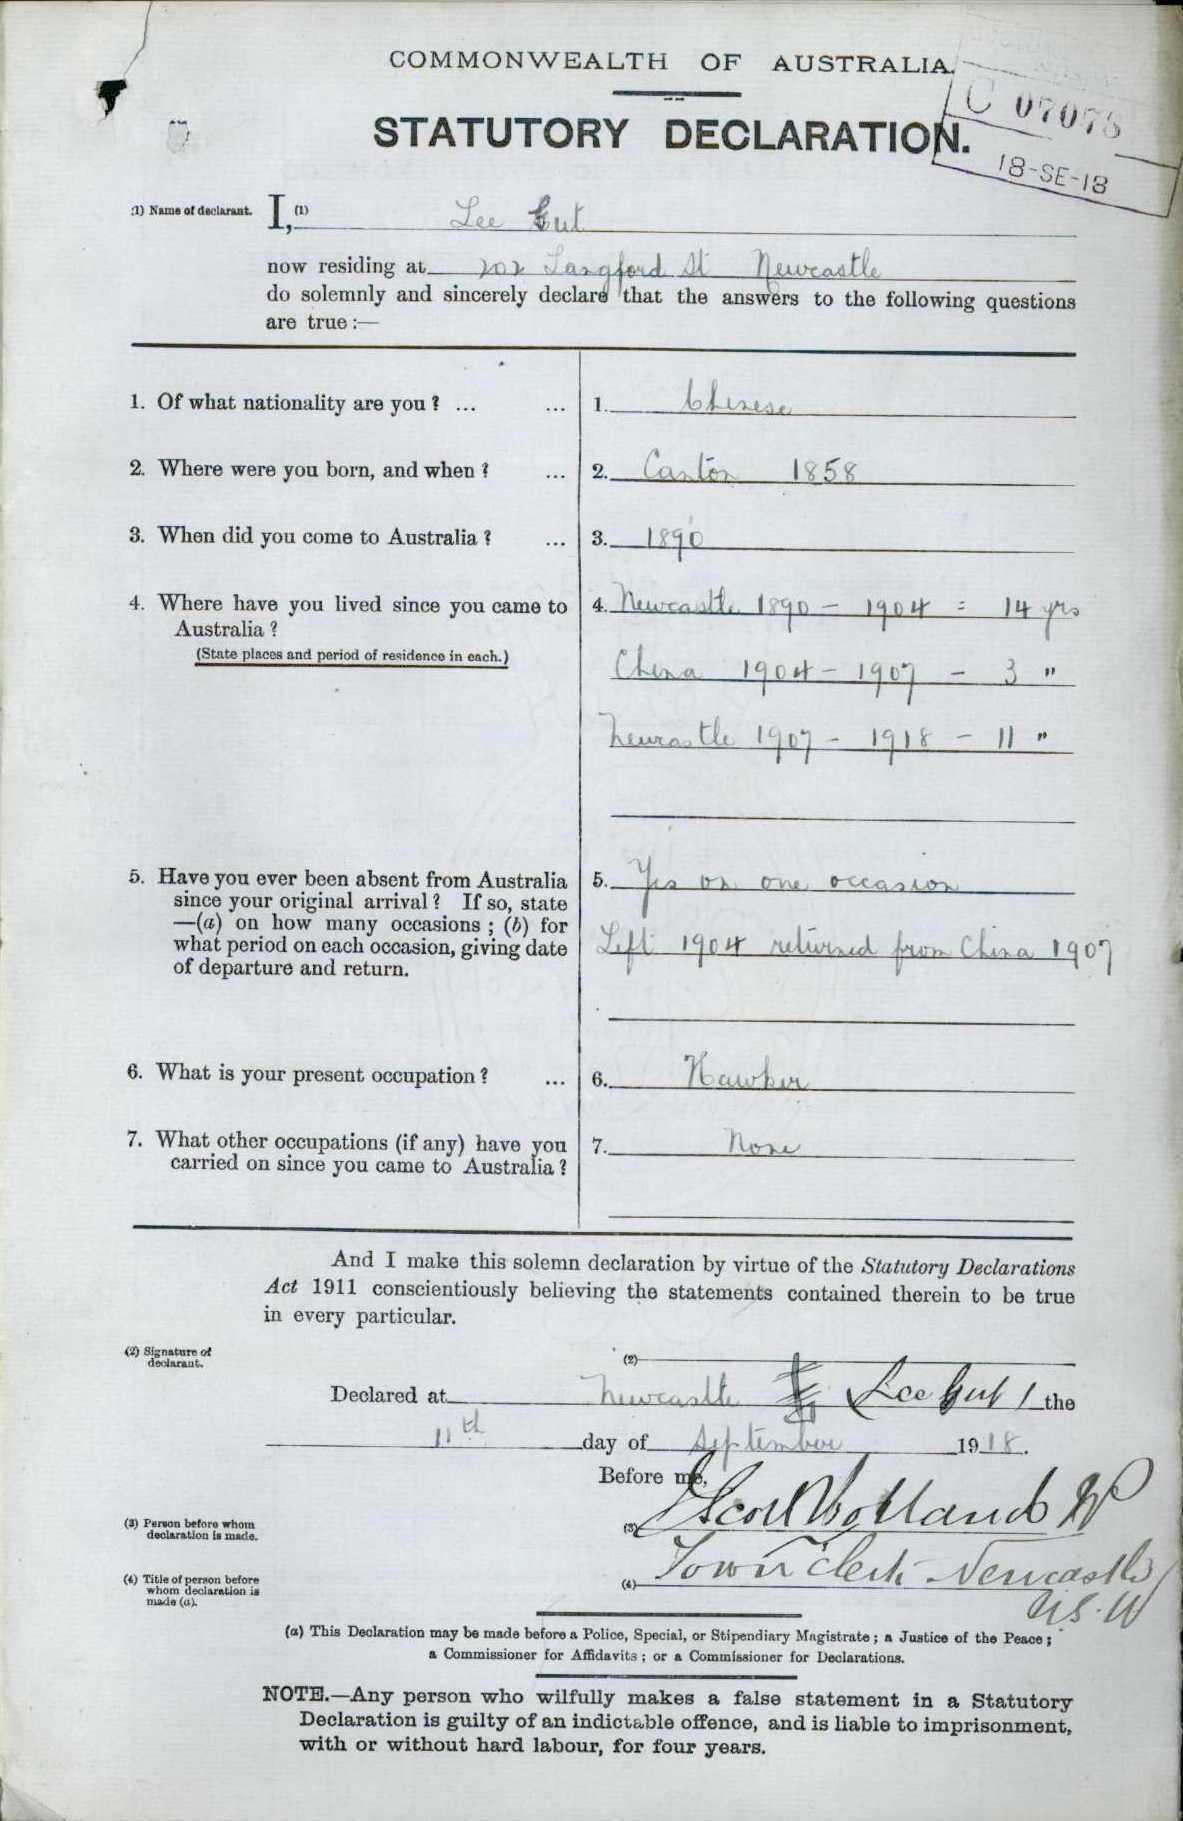 COMMONWEALTH OF AUSTRALIA.
C 07078
18-SE-18
STATUTORY DECLARATION.
(1) Name of declarant. I, (1) Lee Gut
now residing at 202 Langford St Newcastle
do solemnly and sincerely declare that the answers to the following questions
are true :—
1. Of what nationality are you ? ... ... 1. Chinese
2. Where were you born, and when ? ... 2. Canton 1858
3. When did you come to Australia ? ... 3. 1890
4. Where have you lived since you came to 4. Newcastle 1890 – 1904 = 14 yrs
Australia ?
(State places and period of residence in each.)
China 1904 – 1907 – 3 "
Newcastle 1907 – 1918 – 11 "
5. Have you ever been absent from Australia 5. Yes on one occasion
since your original arrival ? If so, state
—(a) on how many occasions ; (b) for
what period on each occasion, giving date Left 1904 returned from China 1907
of departure and return.
6. What is your present occupation ? ... 6. Hawker
7. What other occupations (if any) have you 7. None
carried on since you came to Australia ?
And I make this solemn declaration by virtue of the Statutory Declarations
Act 1911 conscientiously believing the statements contained therein to be true
in every particular.
(2) Signature of
declarant.
(2)
Declared at Newcastle Lee Gut the
11th day of September 1918.
Before me,
(3) Person before whom
declaration is made.
(3) JP
(4) Title of person before
whom declaration is
made (a).
(4) Town Clerk Newcastle
N.S.W
(a) This Declaration may be made before a Police, Special, or Stipendiary Magistrate ; a Justice of the Peace ;
a Commissioner for Affidavits ; or a Commissioner for Declarations.
NOTE.—Any person who wilfully makes a false statement in a Statutory
Declaration is guilty of an indictable offence, and is liable to imprisonment,
with or without hard labour, for four years.